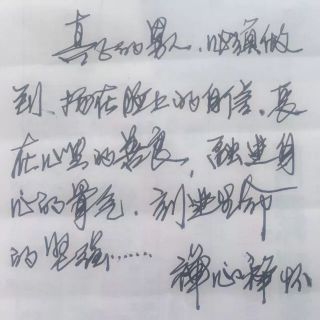 真正的男人,必须做
到、扬在脸上的自信、长
在心里的善良,融进身
心的骨气,刻进生命
的坚强……
禅心禅怀